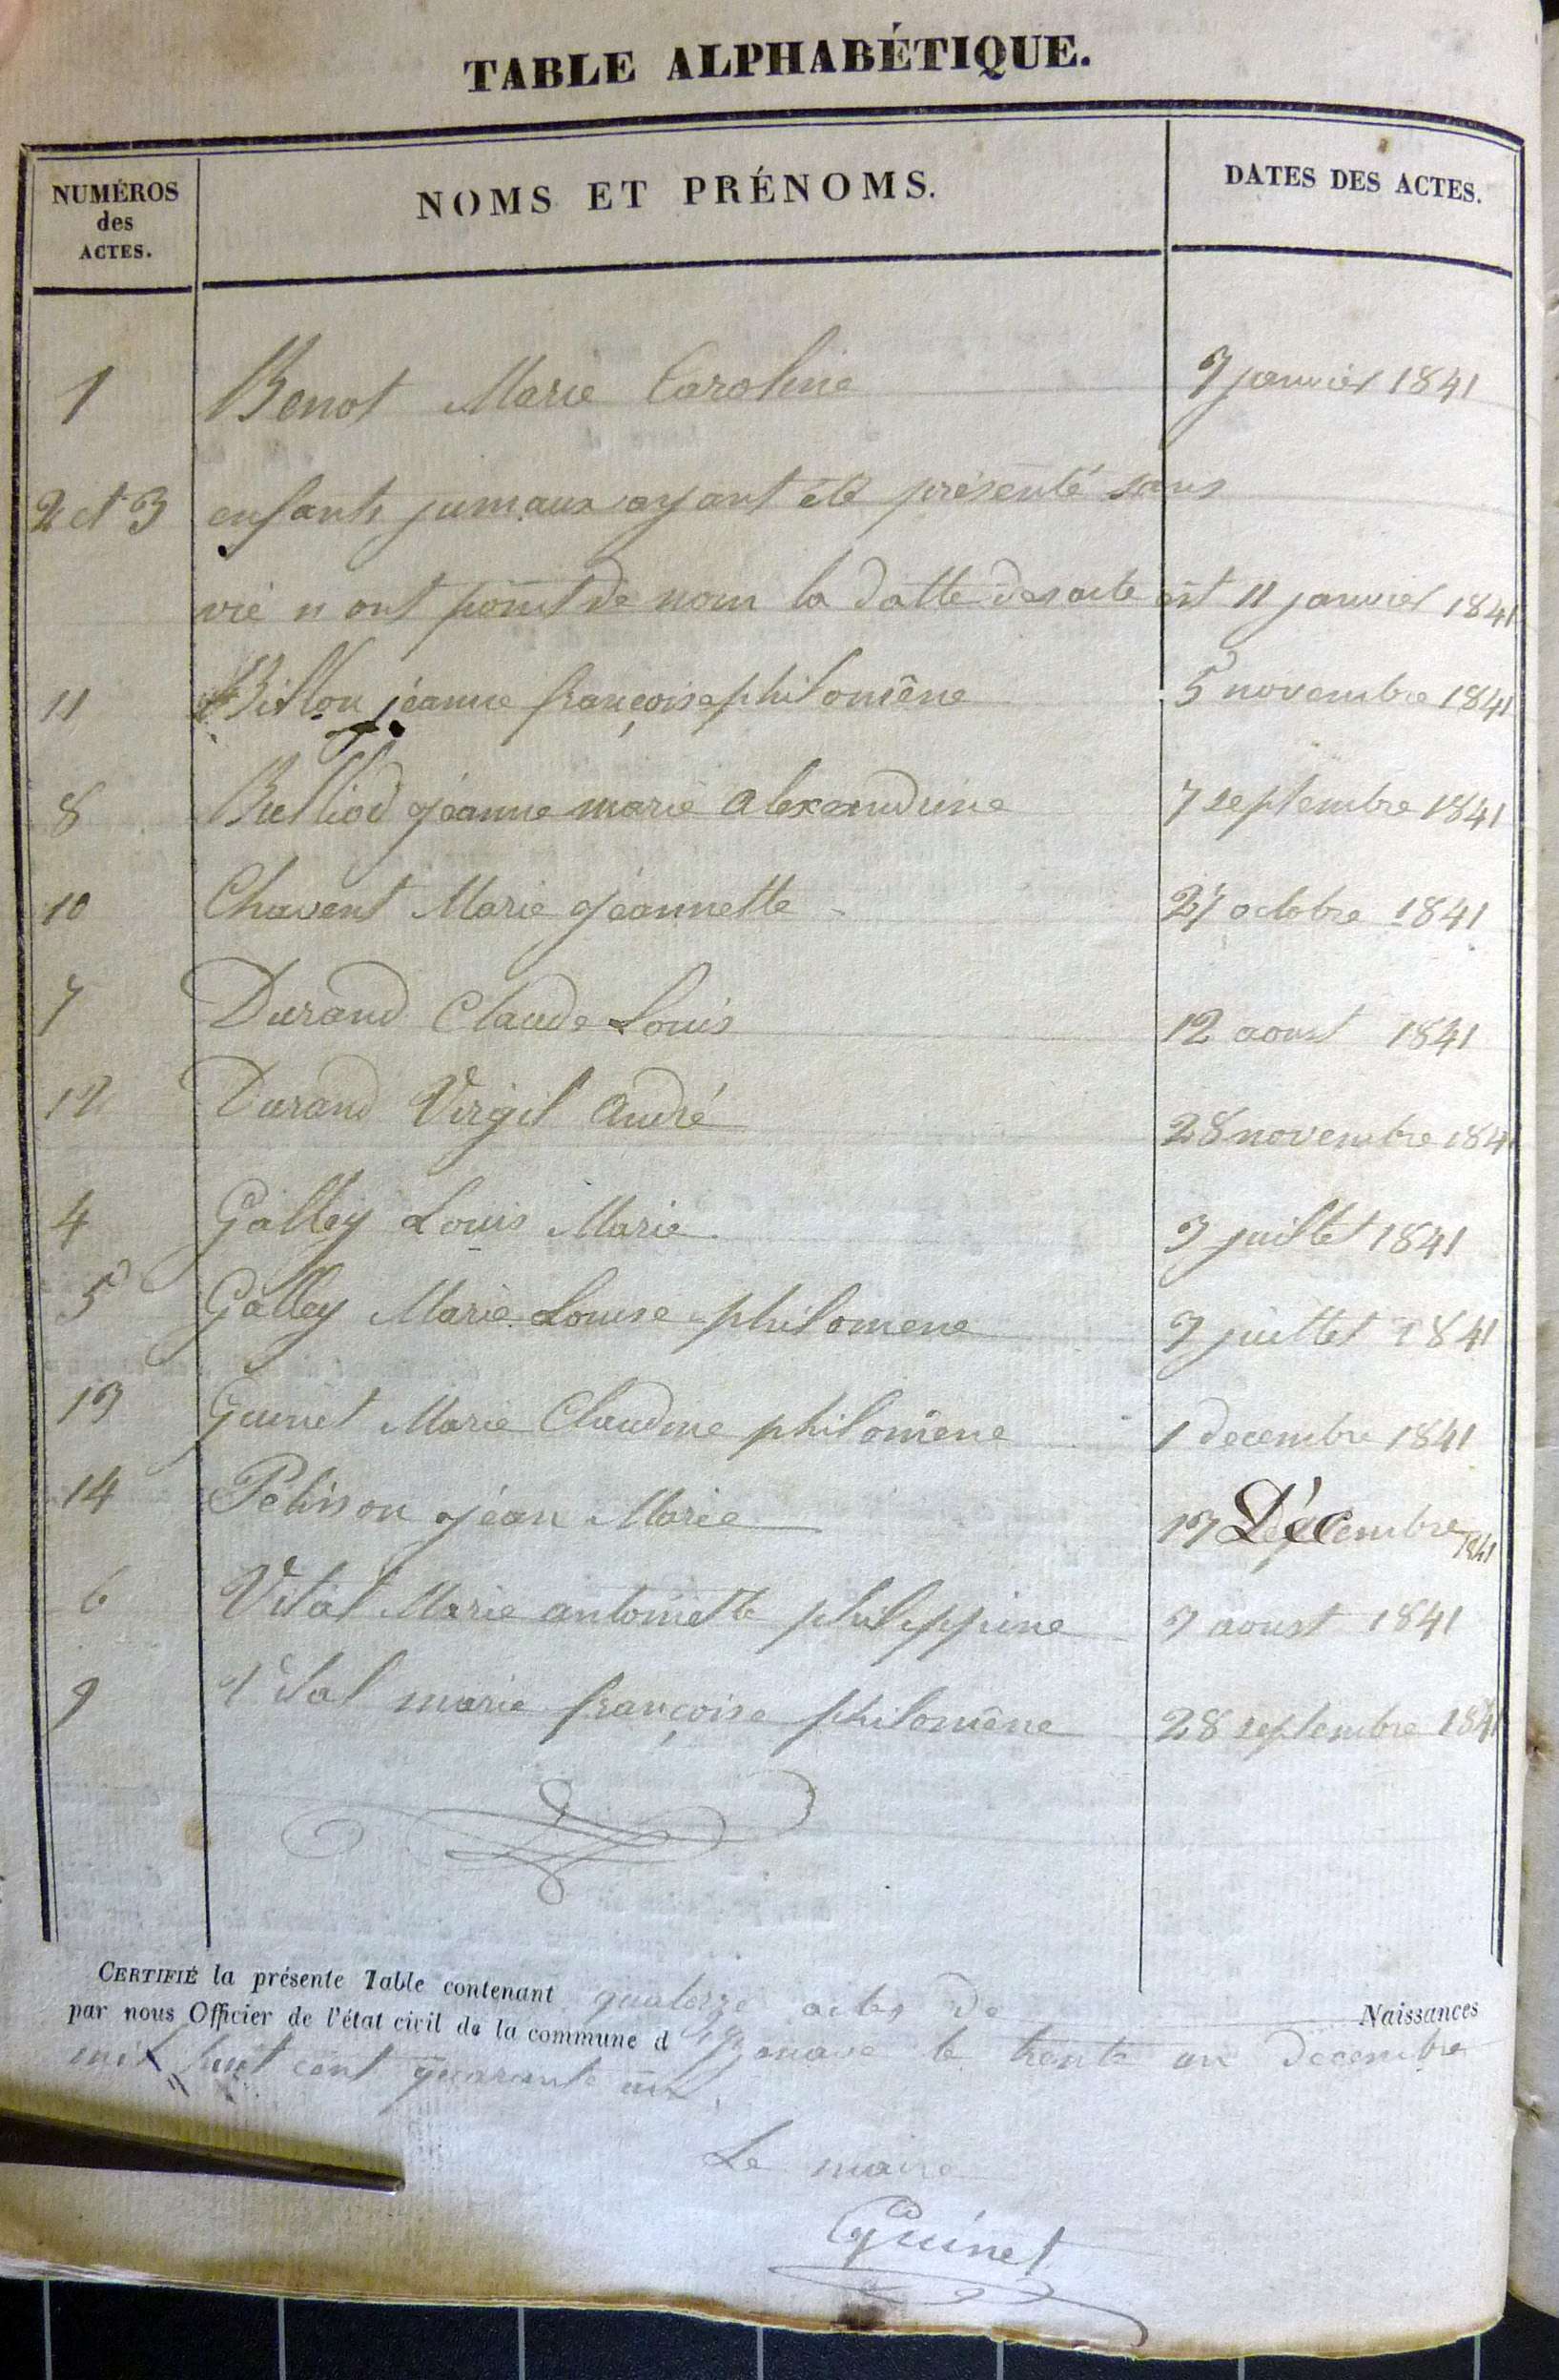 TABLE ALPHABÉTIQUE.
NUMÉROS des ACTES. NOMS ET PRÉNOMS. DATES DES ACTES.
1 Benot Marie Caroline 3 janvier 1841
2 et 3 enfants jumaux ayant été présenté sans
vie n ont point de nom la datte des acte est 11 janvier 1841
11 Billon jéanne françoise philomène 5 novembre 1841
8 Bulliod jéanne marie alexandrine 7 septembre 1841
10 Chavent Marie jéannette 27 octobre 1841
7 Durand Claude Louis 12 aoust 1841
12 Durand Virgil André 28 novembre 1841
4 Galley Louis Marie 3 juillet 1841
5 Galley Marie Louise philomene 3 juillet 1841
13 Guinet Marie Claudine philomène 1 decembre 1841
14 Pelisson jéan Marie 13 Décembre 1841
6 Vital Marie antoinette philippine 3 aoust 1841
9 Vital marie françoise philomène 28 septembre 1841
CERTIFIÉ la présente Table contenant quatorze actes de Naissances
par nous Officier de l'état civil de la commune d le trente un decembre
mil huit cent quarante un.
Le maire
Guinet